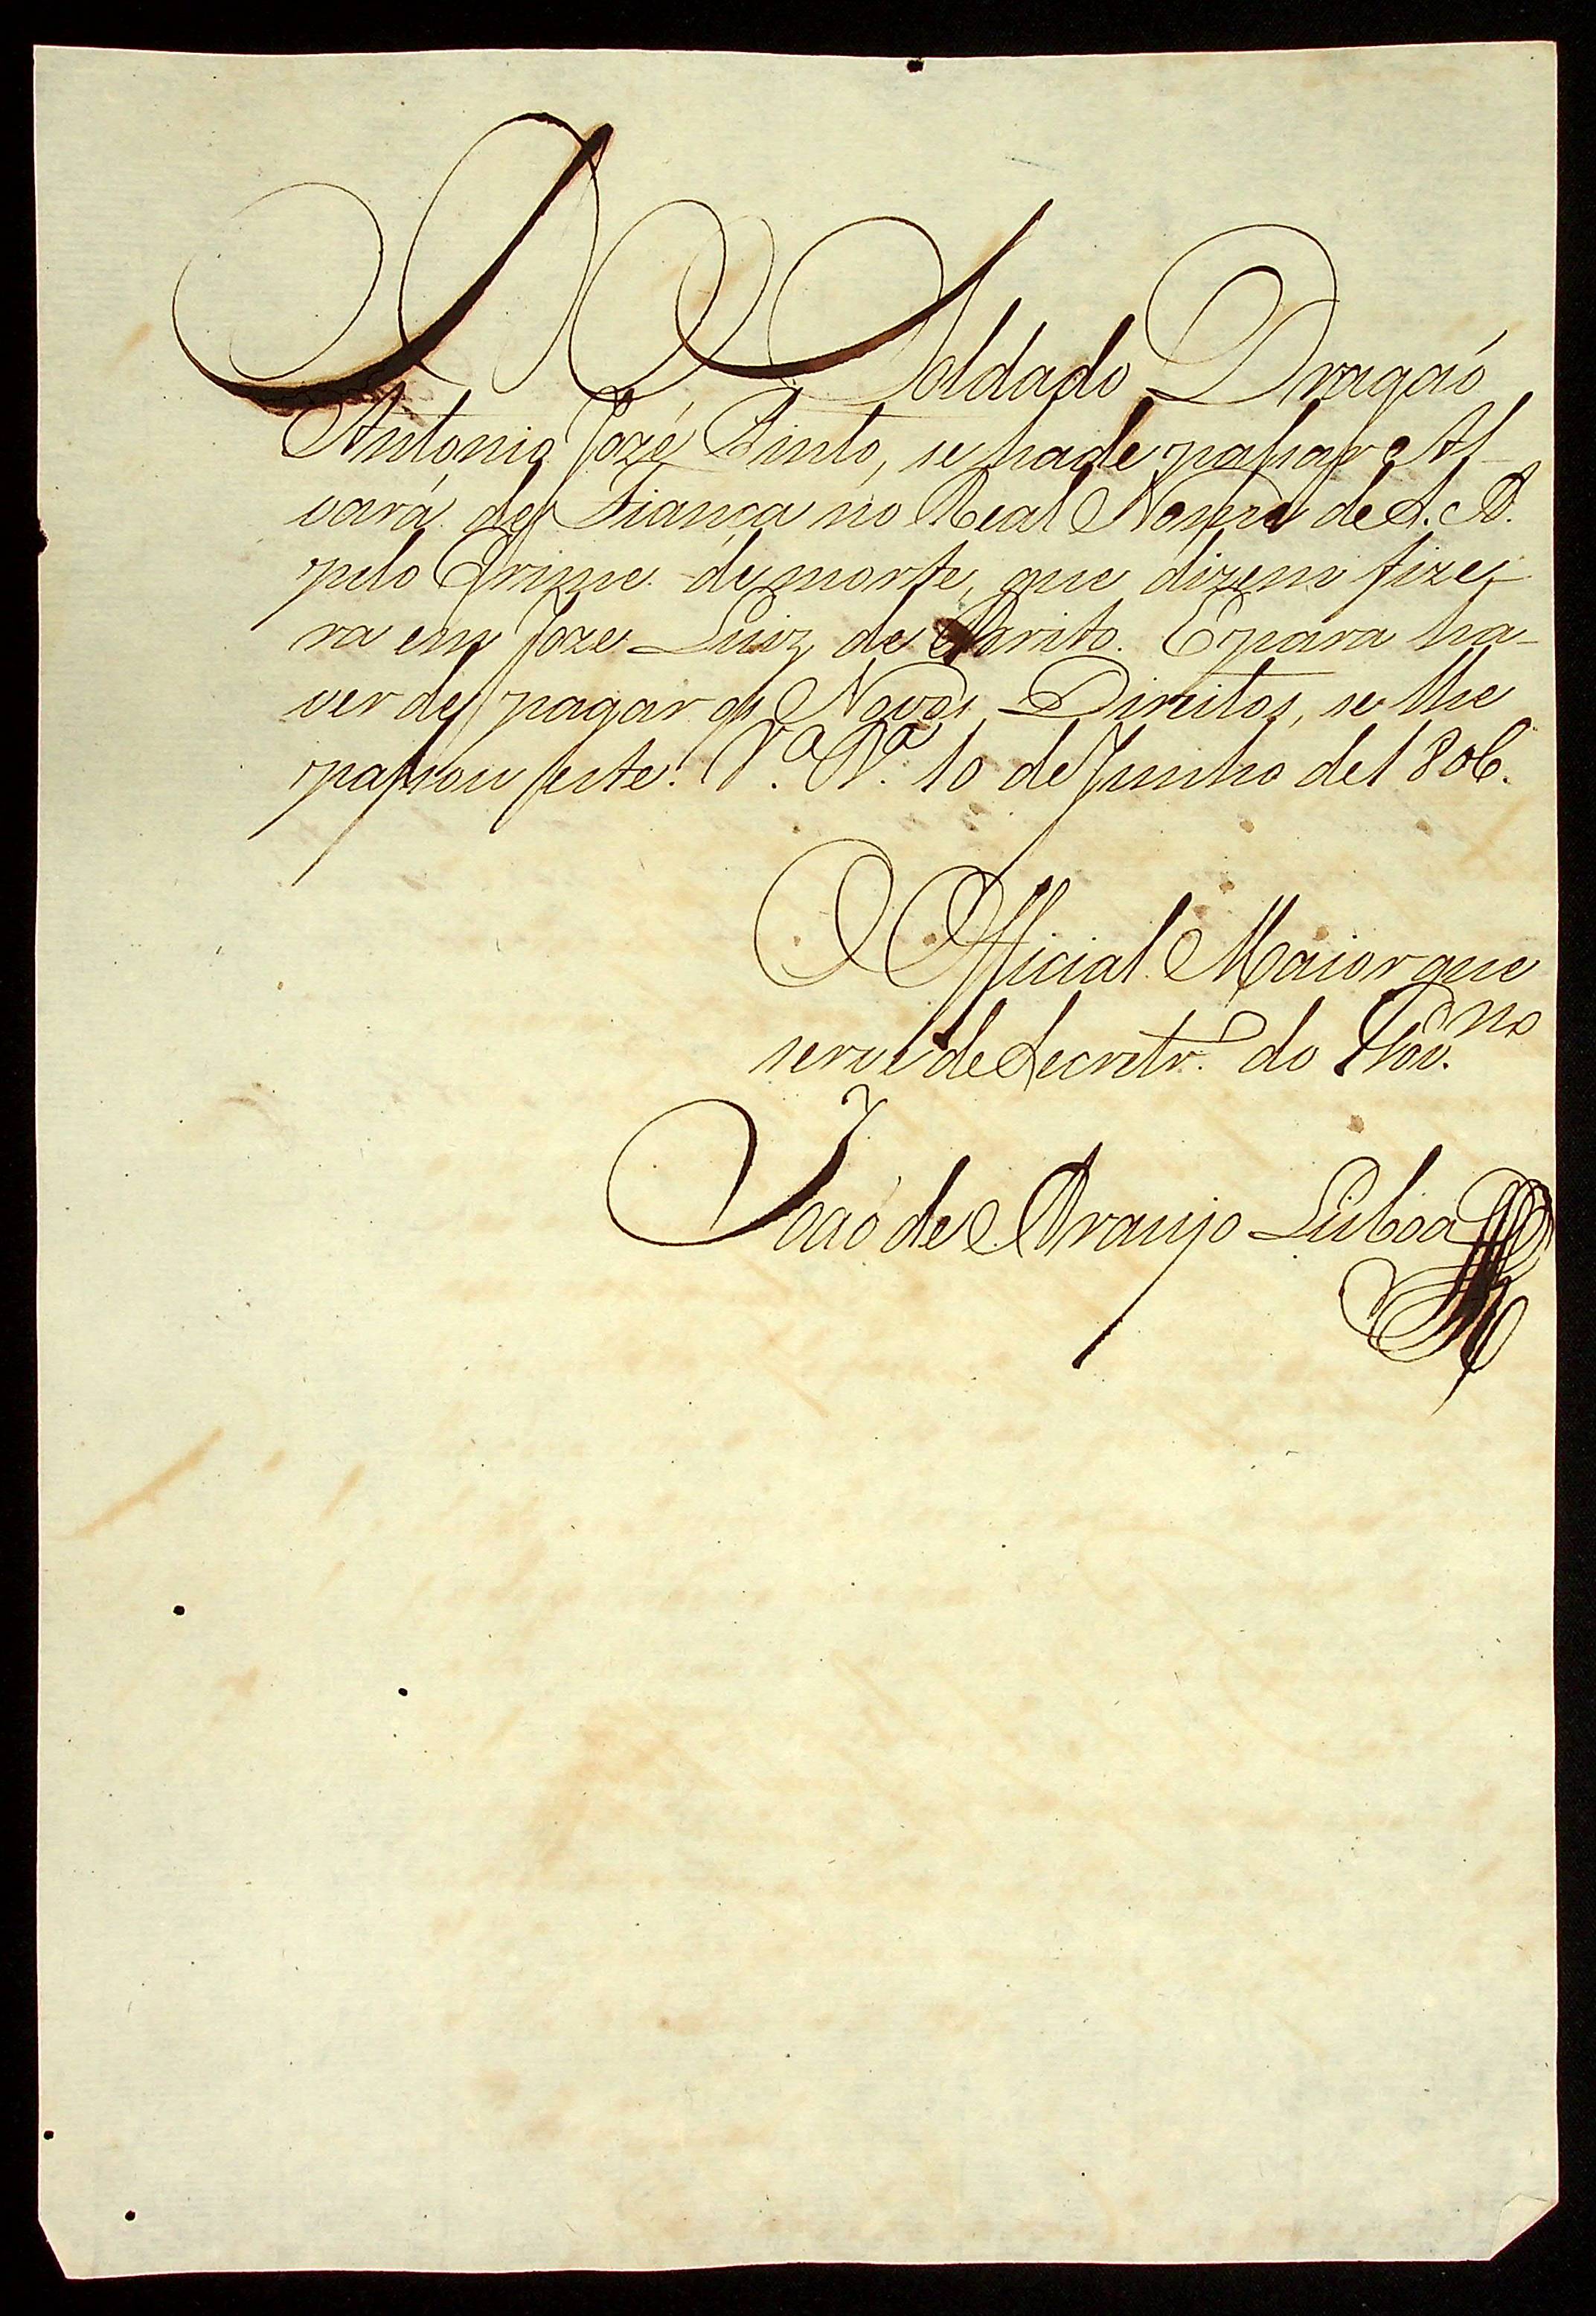 Ao Soldado Dragaõ
Antonio Jozé Pinto, se hade passar Al-
vará de Fiança no Real Nome de S. A.
pelo Crime de morte, que dizem fize-
ra em Joze Luiz de Brito. E para ha-
ver de pagar os Novos Direitos, se lhe
passou este. V.ª B.ª 10 de Junho de 1806.
O Official Maior que
serve de Secretr.º do Gov.no
Joaõ de Araujo Lisboa